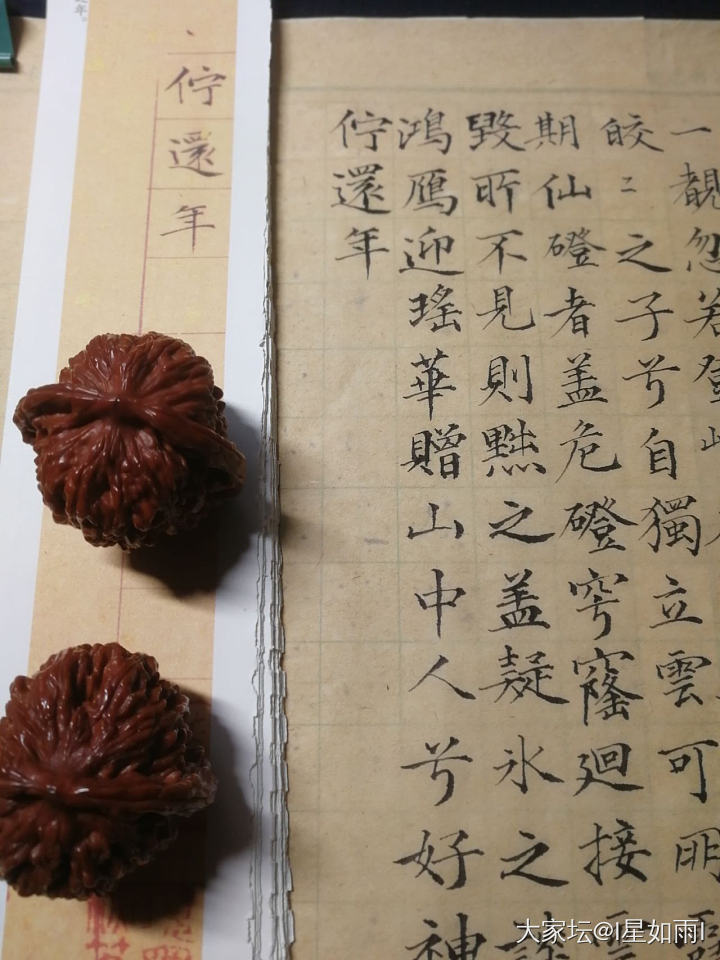 一覩忽若登
皎二之子兮自獨立雲可朋霞
期仙磴者盖危磴穹窿迴接雲
毀所不見則黙之盖疑氷之談
鴻鴈迎瑤華贈山中人兮好神
佇還年
佇還年
年。
大家坛@I星如雨I